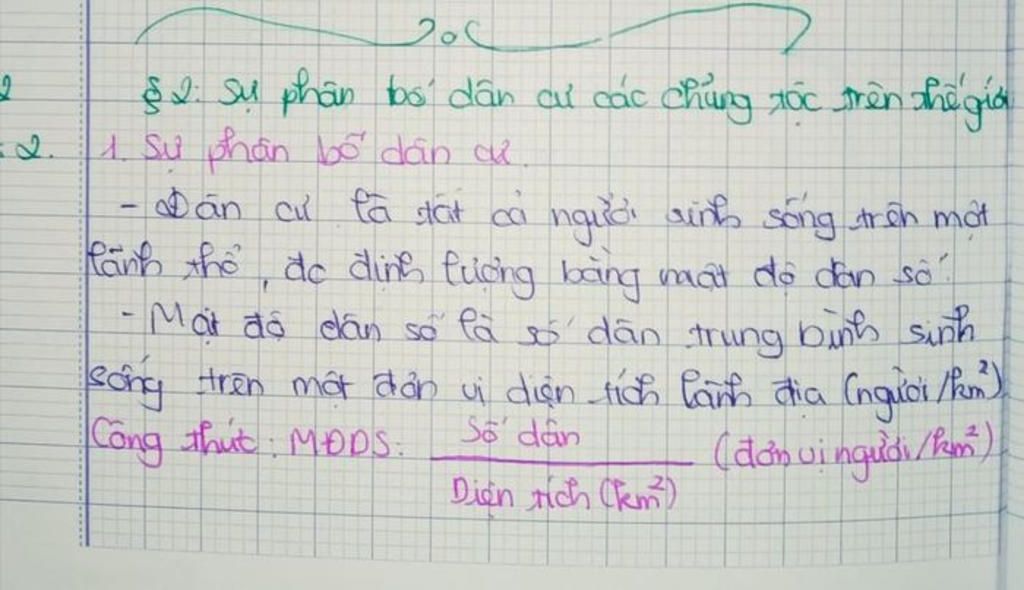 2
§2: Sự phân bố dân cư các chủng tộc trên thế giới
: 2. 1. Sự phân bố dân cư.
- Dân cư là tất cả người sinh sống trên một
lãnh thổ, đc định lượng bằng mật độ dân số.
- Mật độ dân số là số dân trung bình sinh
sống trên một đơn vị diện tích lãnh địa (người/km²)
Công thức: MĐDS: Số dân (đơn vị người/km²)
Diện tích (km²)